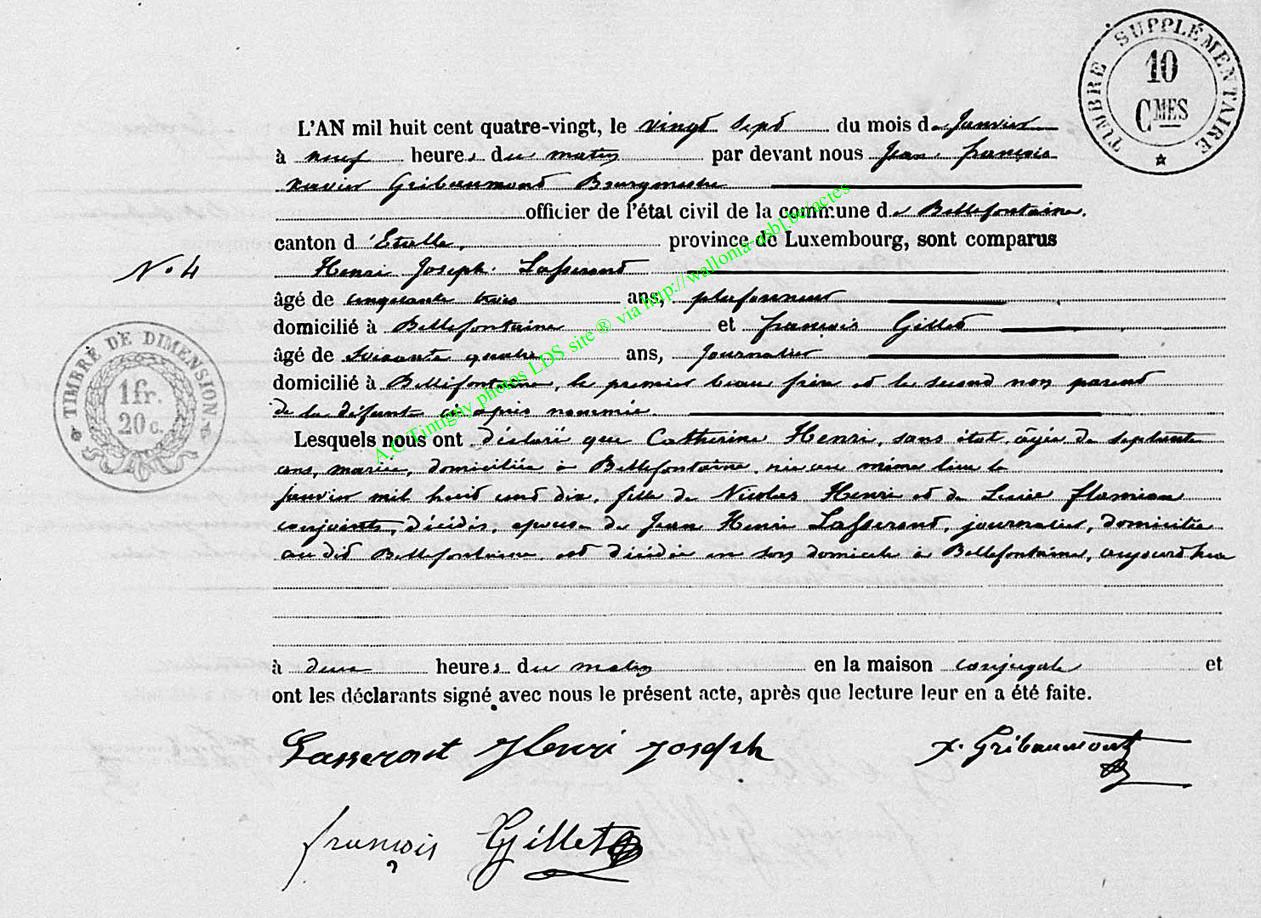 TIMBRE SUPPLÉMENTAIRE
10
CMES
L'AN mil huit cent quatre-vingt, le vingt sept du mois de Janvier
à neuf heures du matin par devant nous Jean françois
xavier Gribaumont Bourgmestre
officier de l'état civil de la commune de Bellefontaine,
canton d'Etalle, province de Luxembourg, sont comparus
N° 4
Henri Joseph Lasseront
âgé de cinquante trois ans, plafonneur
domicilié à Bellefontaine et françois Gillet
âgé de soixante quatre ans, journalier
domicilié à Bellefontaine, le premier beau frère et le second non parent
de la défunte ci après nommée
TIMBRE DE DIMENSION
1 fr.
20 c.
Lesquels nous ont déclaré que Catherine Henri, sans état, âgée de septante
ans, mariée, domiciliée à Bellefontaine, née au même lieu le
janvier mil huit cent dix, fille de Nicolas Henri et de Lucie
conjoints, décédés, épouse de Jean Henri Lasseront, journalier, domicilié
au dit Bellefontaine est décédée en son domicile à Bellefontaine, aujourd'hui
à deux heures du matin en la maison conjugale et
ont les déclarants signé avec nous le présent acte, après que lecture leur en a été faite.
Lasseront Henri Joseph
x. Gribaumont
françois Gillet
A.C Tintigny photos LDS site ® via http://walloma-asbl.be/actes